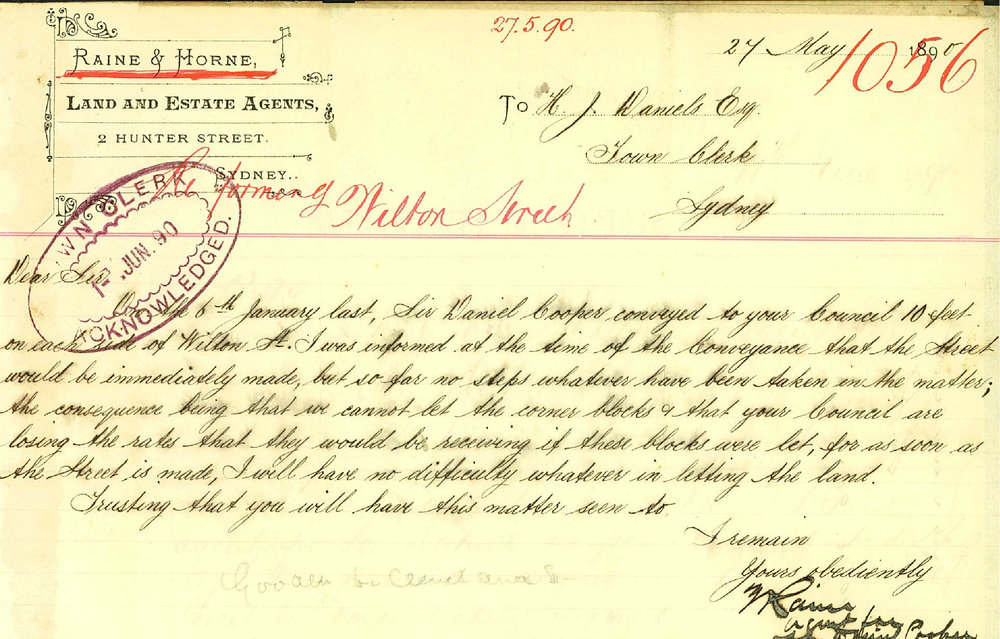 27.5.90.
RAINE & HORNE,
LAND AND ESTATE AGENTS,
2 HUNTER STREET.
SYDNEY,
27 May 1890
1056
To H. J. Daniels Esq.
Town Clerk
Sydney
Re forming Wilton Street
TOWN CLERK
JUN. 90
ACKNOWLEDGED.
Dear Sir,
On the 6th January last, Sir Daniel Cooper conveyed to your Council 10 feet
on each side of Wilton St. I was informed at the time of the Conveyance that the Street
would be immediately made, but so far no steps whatever have been taken in the matter;
the consequence being that we cannot let the corner blocks & that your Council are
losing the rates that they would be receiving if these blocks were let, for as soon as
the Street is made, I will have no difficulty whatever in letting the land.
Trusting that you will have this matter seen to
I remain
Yours obediently
Raine
agent for
Sir Daniel Cooper